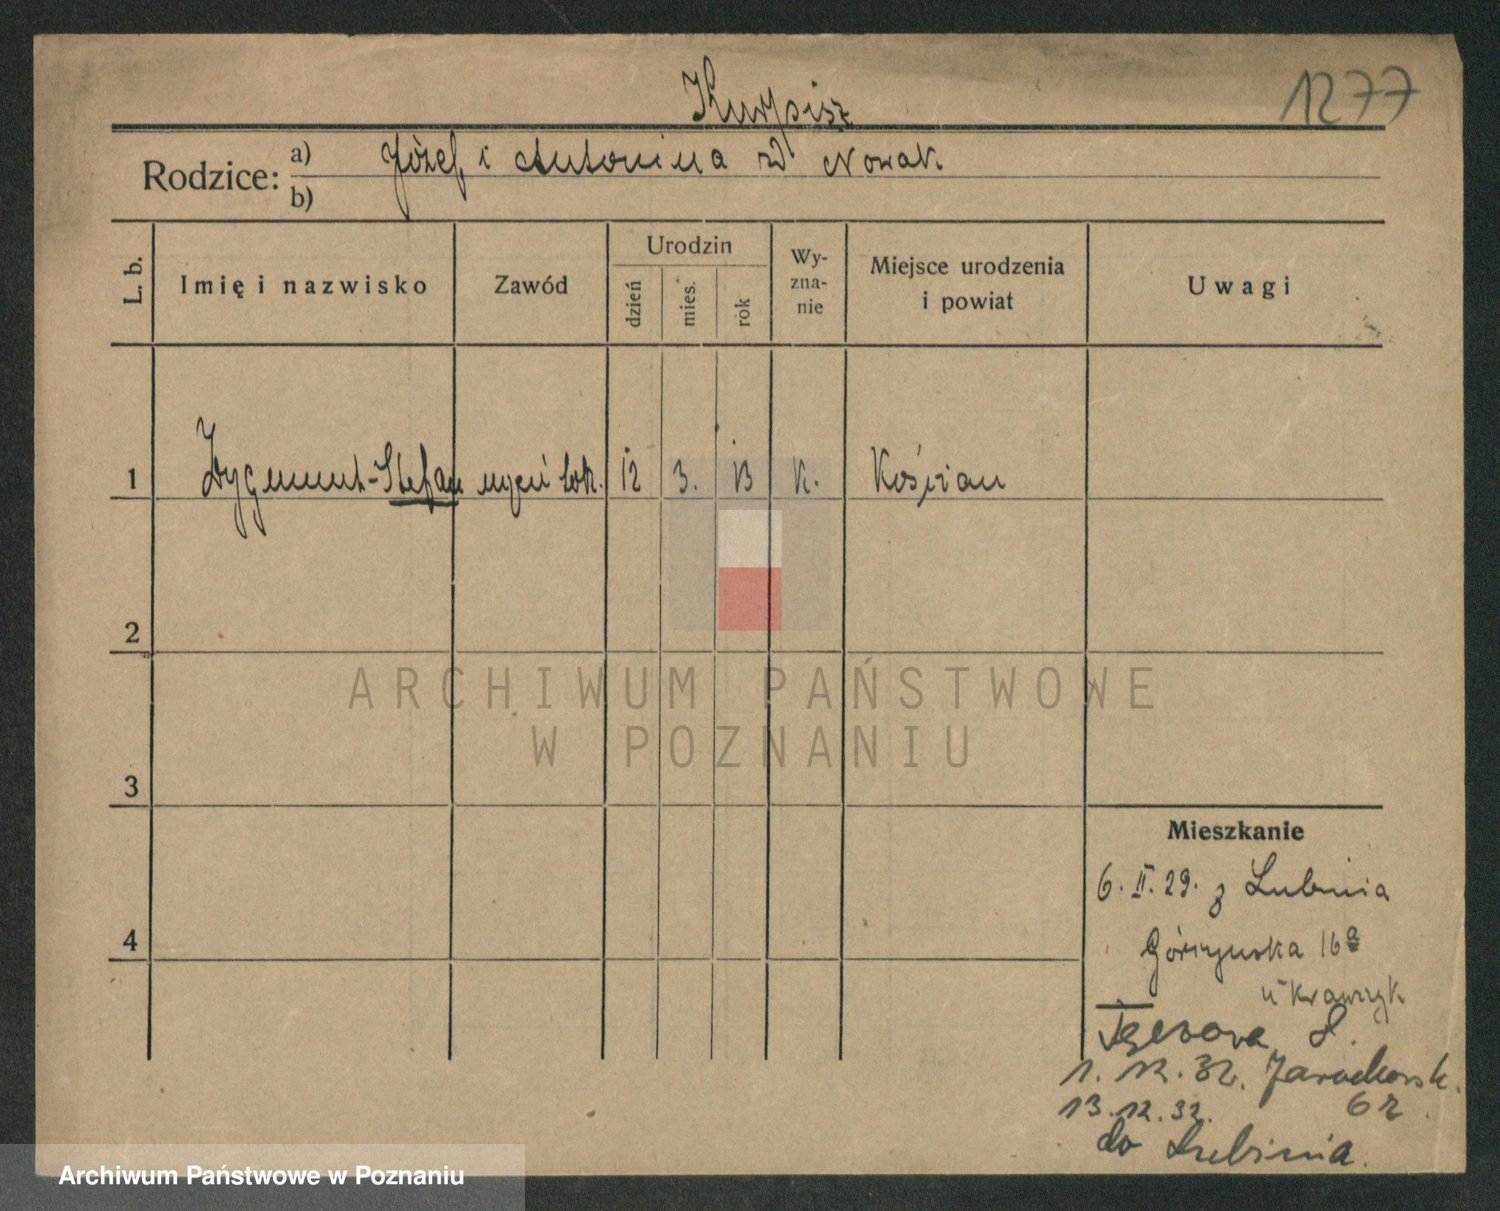 Kurpisz
1277
Rodzice: a) Józef i Antonina zd Nowak
b)
L. b.
Imię i nazwisko
Zawód
Urodzin
dzień
mies.
rok
Wy-
zna-
nie
Miejsce urodzenia
i powiat
Uwagi
1 Zygmunt-Stefan uczeń 12 3. 13 k. Kościan
2
3
4
ARCHIWUM PAŃSTWOWE
W POZNANIU
Mieszkanie
6. II. 29. z Lubinia
Górczyńska 16a
u Krawczyk
8.
1. 12. 32. Jarochowsk.
62
13.12.32.
do Lubinia.
Archiwum Państwowe w Poznaniu